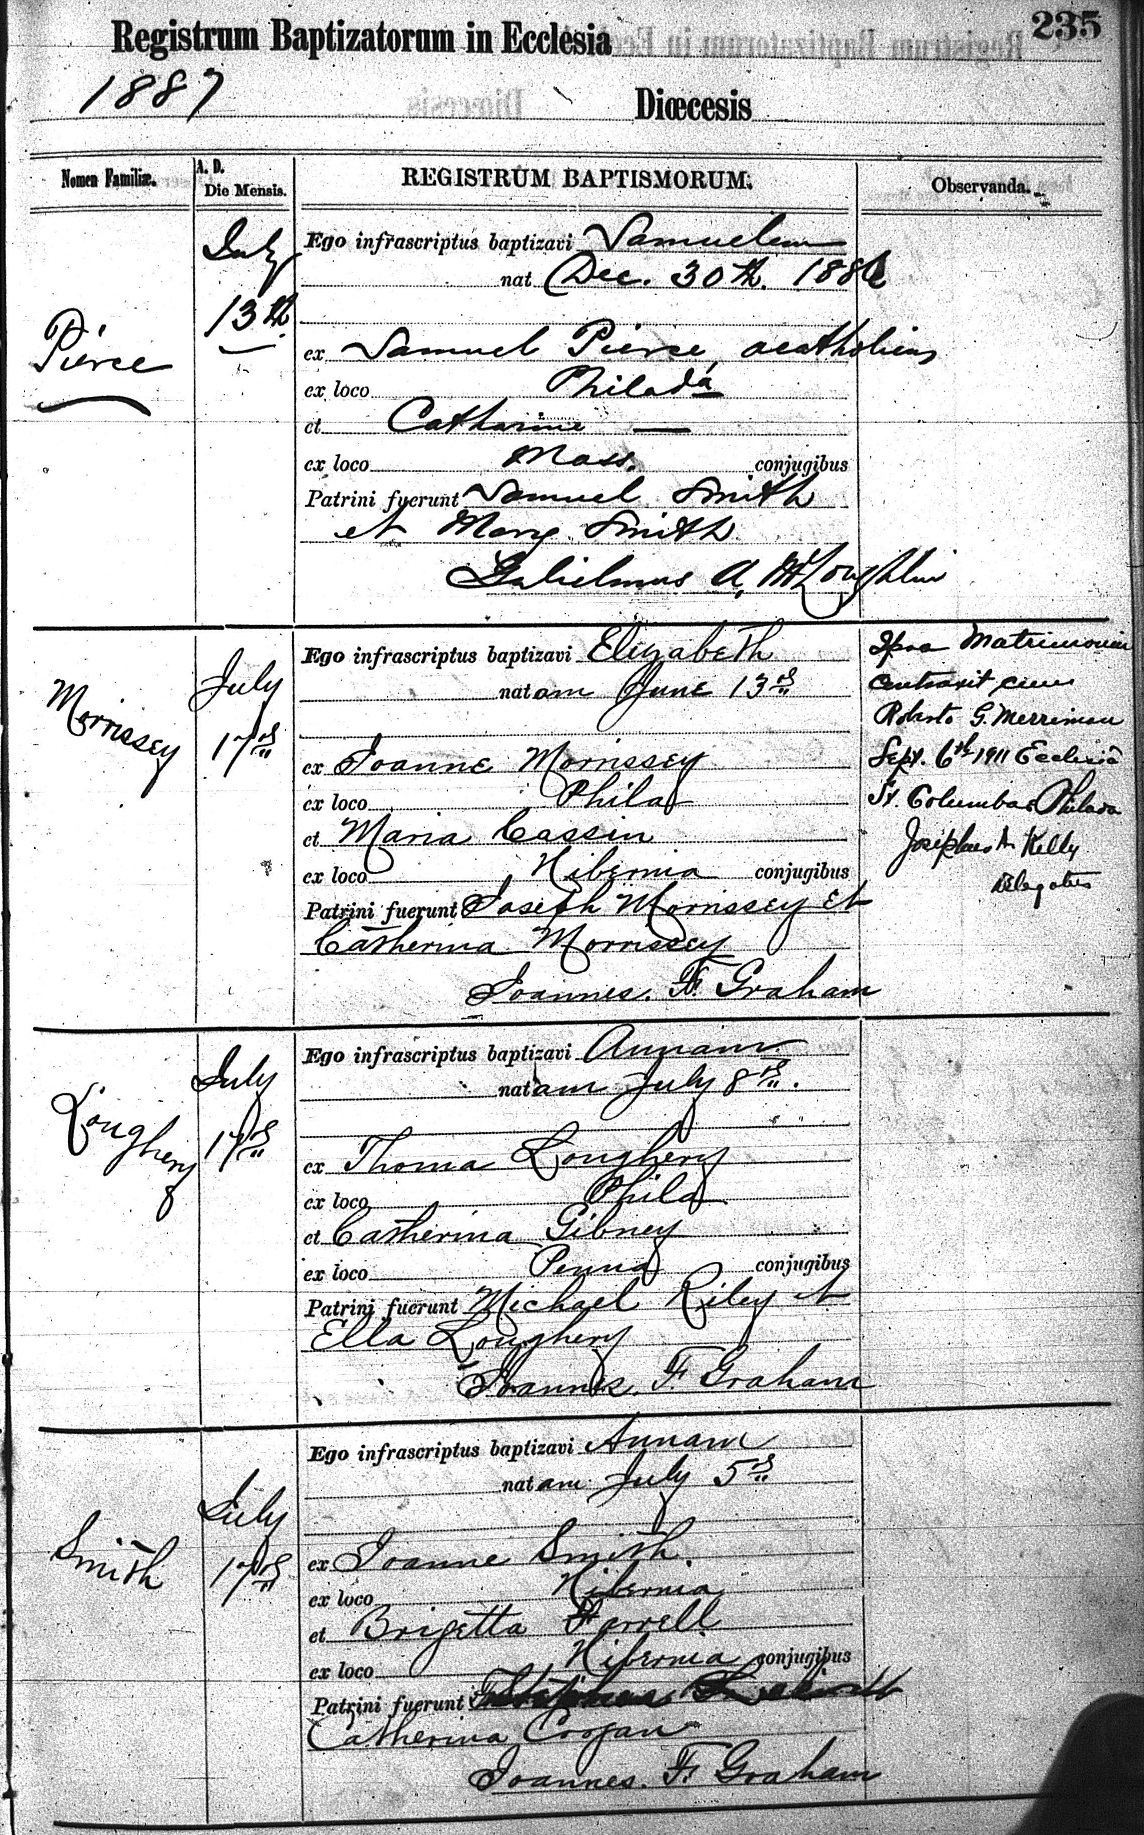 235
Registrum Baptizatorum in Ecclesia
1887
Diœcesis
Nomen Familiæ.
A. D.
Die Mensis.
REGISTRUM BAPTISMORUM.
Observanda.
Pierce
July
13th
Ego infrascriptus baptizavi Samuelem
nat Dec. 30th. 1886
ex Samuel Pierce acatholicus
ex loco Philada
et Catharine —
ex loco Mass. conjugibus
Patrini fuerunt Samuel Smith
et Mary Smith
Gulielmus A. McLoughlin
Morrissey
July
17th
Ego infrascriptus baptizavi Elizabeth
natam June 13th
ex Joanne Morrissey
ex loco Phila
et Maria Cassin
ex loco Hibernia conjugibus
Patrini fuerunt Joseph Morrissey et
Catherina Morrissey
Joannes. F. Graham
Ipsa Matrimonium
contraxit cum
Roberto G. Merriman
Sept. 6th 1911 Ecclesiâ
St. Columbae Philada
Josephus A Kelly
Delegatus
Loughery
July
17th
Ego infrascriptus baptizavi Annam
natam July 8th.
ex Thoma Loughery
ex loco Phila
et Catherina Gibney
ex loco Penna conjugibus
Patrini fuerunt Michael Riley et
Ella Loughery
Joannes. F. Graham
Smith
July
17th
Ego infrascriptus baptizavi Annam
natam July 5th
ex Joanne Smith.
ex loco Hibernia
et Brigetta Farrell
ex loco Hibernia conjugibus
Patrini fuerunt
Catherina Crogan
Joannes. F. Graham